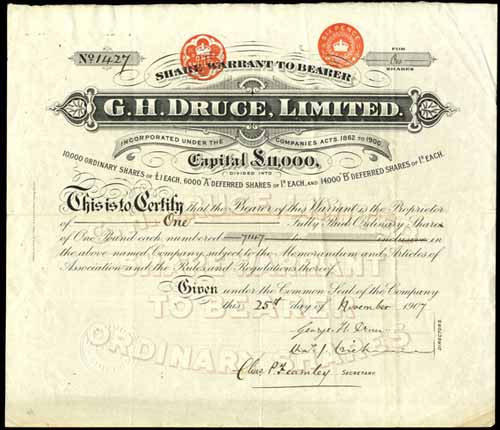 No 1427
ONE
SIX PENCE
FOR
One
SHARES
SHARE WARRANT TO BEARER
G. H. DRUCE, LIMITED.
INCORPORATED UNDER THE COMPANIES ACTS, 1862 TO 1900.
Capital £11,000,
DIVIDED INTO
10000 ORDINARY SHARES OF £1 EACH, 6000 'A' DEFERRED SHARES OF 1D EACH, AND 14000 'B' DEFERRED SHARES OF 1D EACH.
This is to Certify that the Bearer of this Warrant is the Proprietor
of One Fully Paid Ordinary Shares
of One Pound each numbered 7147 to inclusive in
the above named Company, subject to the Memorandum and Articles of
Association and the Rules and Regulations thereof.
Given under the Common Seal of the Company
this 25th day of November 1907
George H. Druce
DIRECTORS
Chas. P. Fearnley SECRETARY
WARRANT
TO BEARER
ORDINARY SHARES